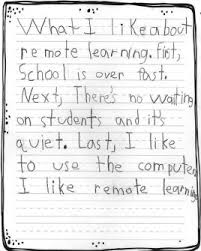 What I like about
remote learning. First,
School is over fast.
Next, There's no waiting
on students and it's
quiet. Last, I like
to use the computer
I like remote learning